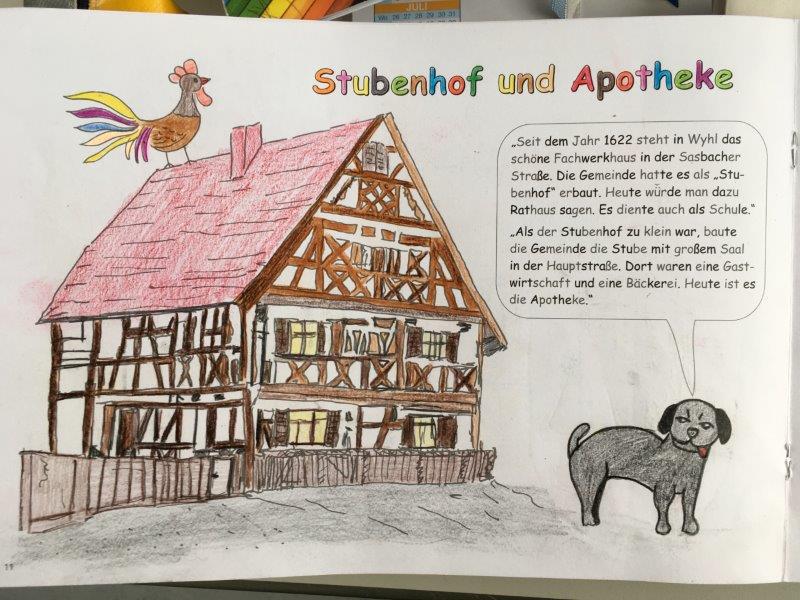 JULI
Wo 26 27 28 29 30 31
Stubenhof und Apotheke
„Seit dem Jahr 1622 steht in Wyhl das
schöne Fachwerkhaus in der Sasbacher
Straße. Die Gemeinde hatte es als „Stu-
benhof“ erbaut. Heute würde man dazu
Rathaus sagen. Es diente auch als Schule.“
„Als der Stubenhof zu klein war, baute
die Gemeinde die Stube mit großem Saal
in der Hauptstraße. Dort waren eine Gast-
wirtschaft und eine Bäckerei. Heute ist es
die Apotheke.“
11